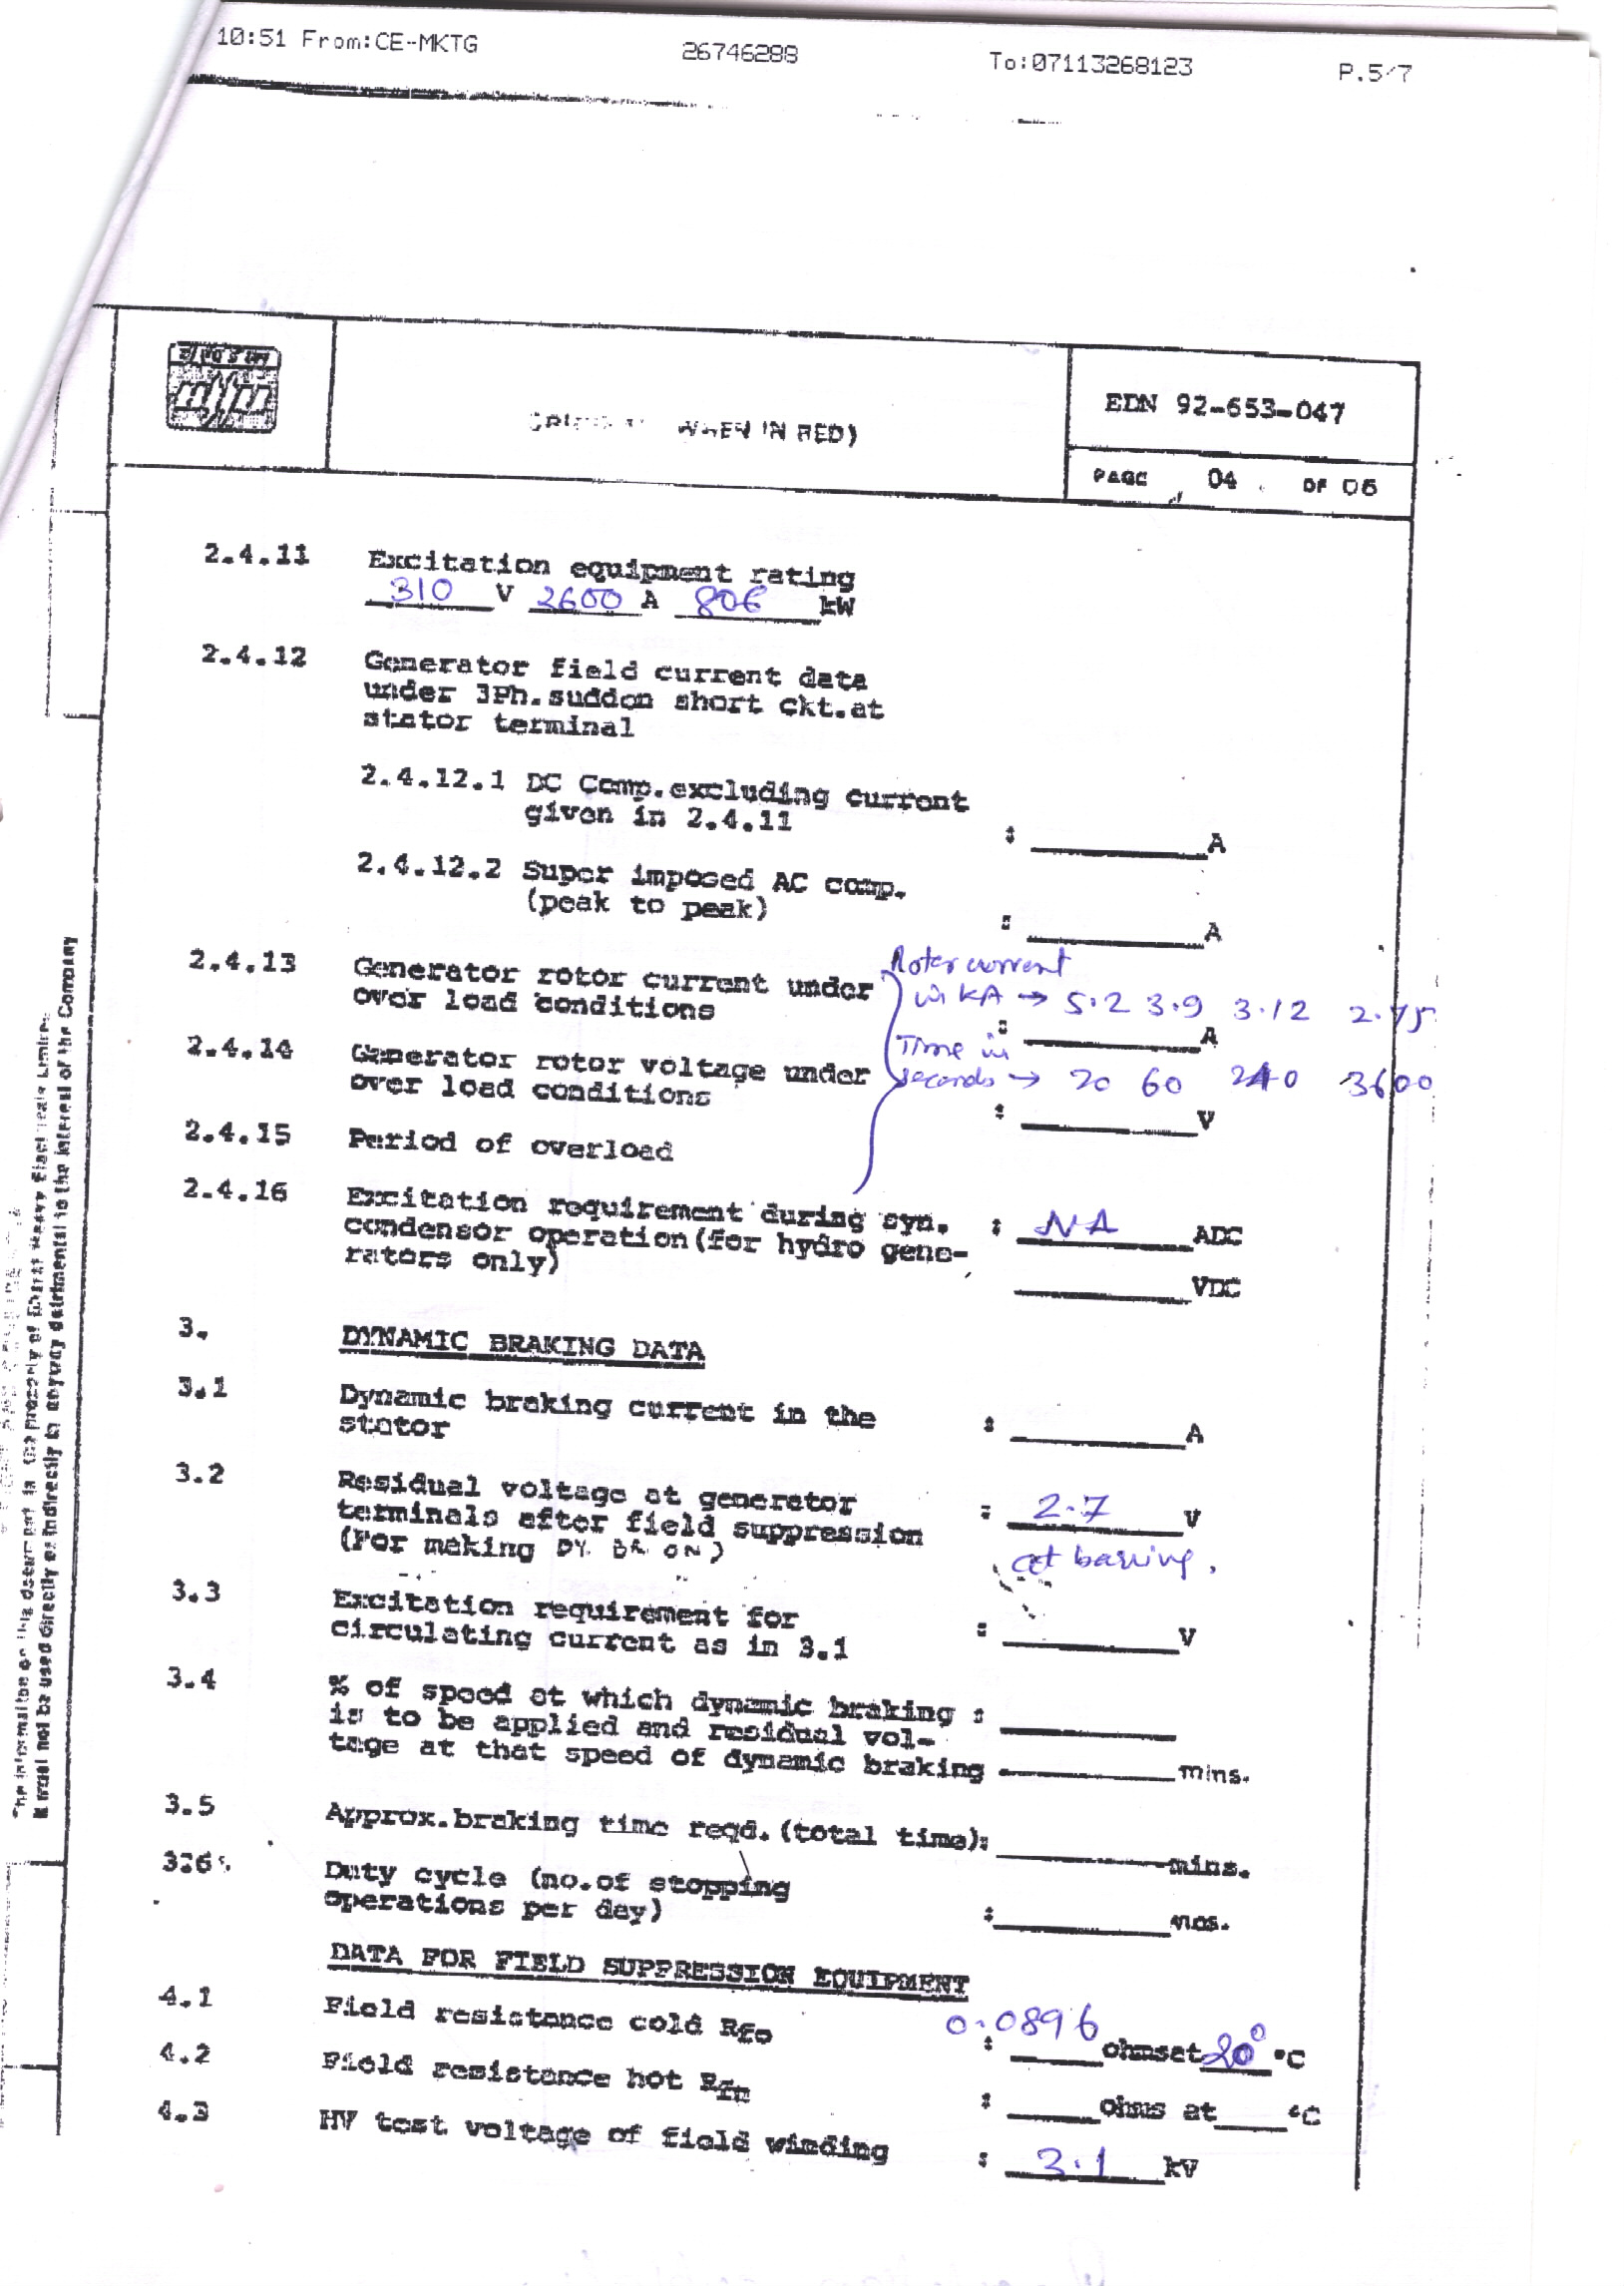 10:51 From:CE-MKTG 26746288 To:07113268123 P.5/7
WHEN IN RED)
EDN 92-653-047
PAGE 04 OF 06
2.4.11 Excitation equipment rating
310 V 2600 A 806 kW
2.4.12 Generator field current data
under 3Ph.suddon short ckt.at
stator terminal
2.4.12.1 DC Comp.excluding current
given in 2.4.11 : A
2.4.12.2 Super imposed AC comp.
(peak to peak) : A
2.4.13 Generator rotor current under
over load conditions : A
Rotor current
in KA → 5.2 3.9 3.12 2.75
2.4.14 Generator rotor voltage under
over load conditions : V
Time in
seconds → 20 60 240 3600
2.4.15 Period of overload
2.4.16 Excitation requirement during syn. : NA ADC
condensor operation(for hydro gene-
rators only) VDC
3. DYNAMIC BRAKING DATA
3.1 Dynamic braking current in the
stator : A
3.2 Residual voltage at generator
terminals after field suppression : 2.7 V
(For making DY. BR ON)
at barring.
3.3 Excitation requirement for
circulating current as in 3.1 : V
3.4 % of speed at which dynamic braking :
is to be applied and residual vol-
tage at that speed of dynamic braking mins.
3.5 Approx.braking time reqd.(total time): mins.
326. Duty cycle (no.of stopping
Operations per day) : nos.
DATA FOR FIELD SUPPRESSION EQUIPMENT
4.1 Field resistance cold Rfo : 0.0896 ohmsat 20° °C
4.2 Field resistance hot : ohms at °C
4.3 HV test voltage of field winding : 3.1 kV
It must not be used directly or indirectly in anyway detrimental to the interest of the Company